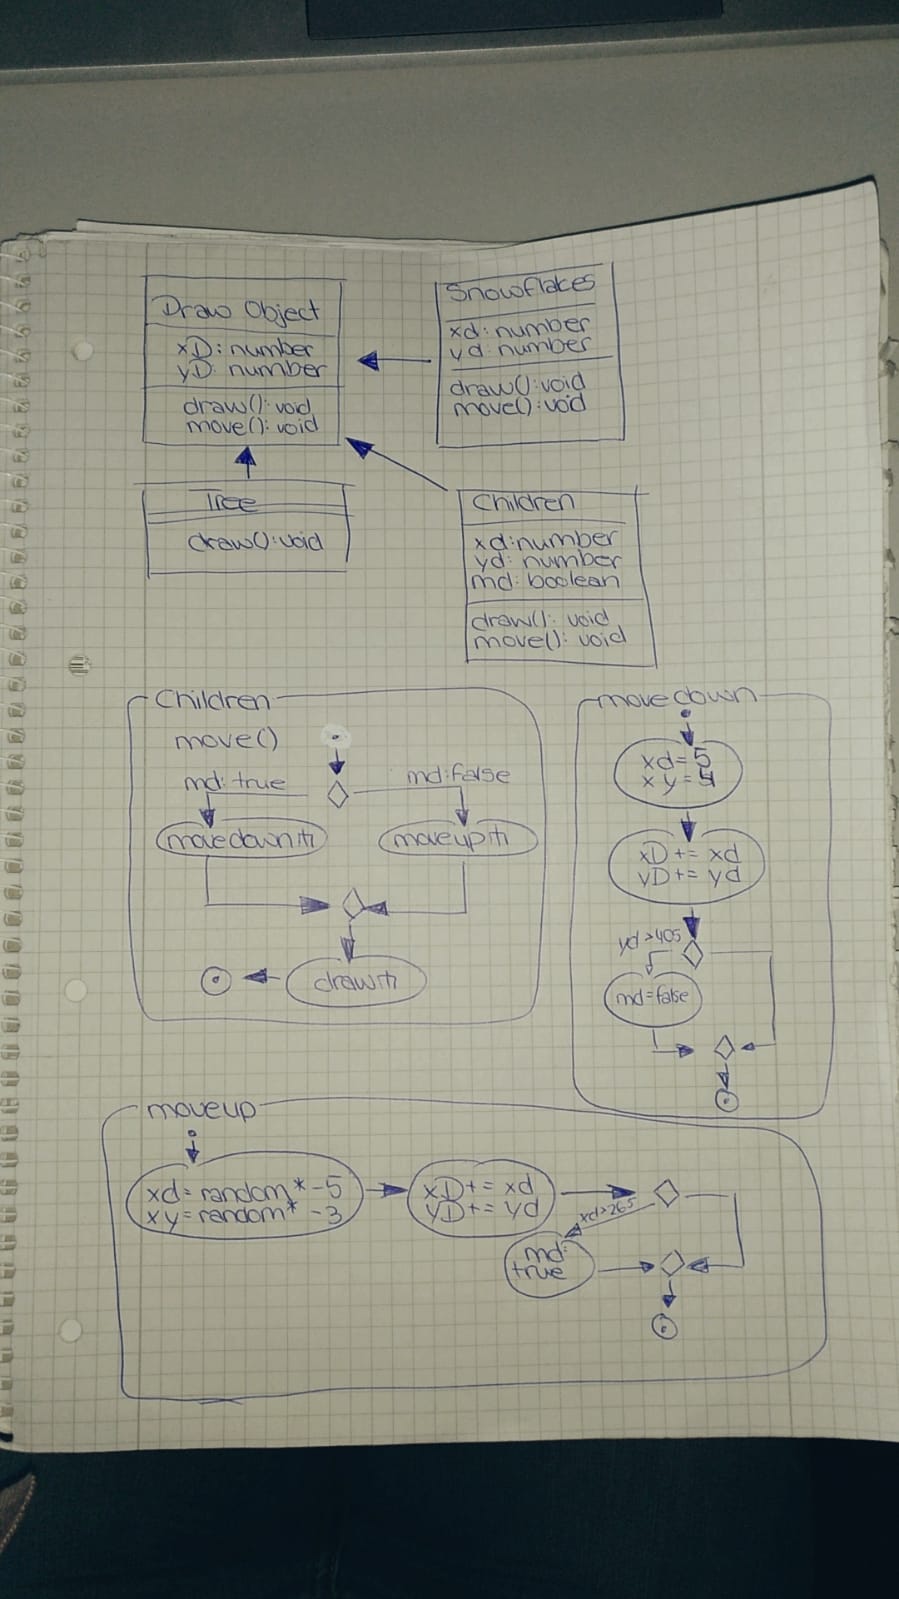 Draw Object
xD: number
yD: number
draw(): void
move(): void
Snowflakes
xd: number
yd: number
draw(): void
move(): void
Tree
draw(): void
Children
xd: number
yd: number
md: boolean
draw(): void
move(): void
Children
move()
md: true
md: false
movedown
moveup
draw
movedown
xd=5
xy=
xD += xd
yD += yd
yd >405
md=false
moveup
xd= random* -5
xy= random* -3
xD += xd
yD += yd
xd>265
md:
true